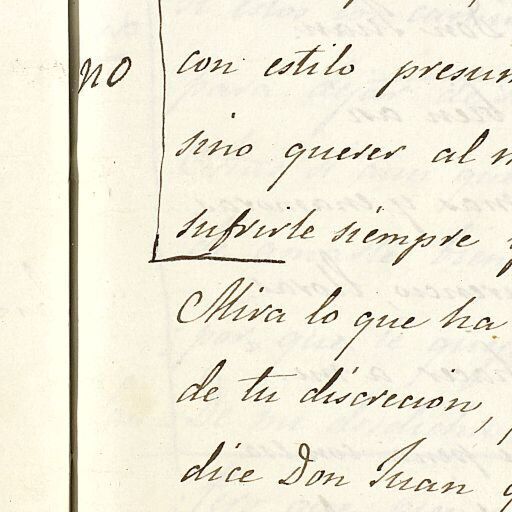 no
con estilo presun
sino querer al m
sufrirle siempre y
Mira lo que ha
de tu discrecion,
dice Don Juan q